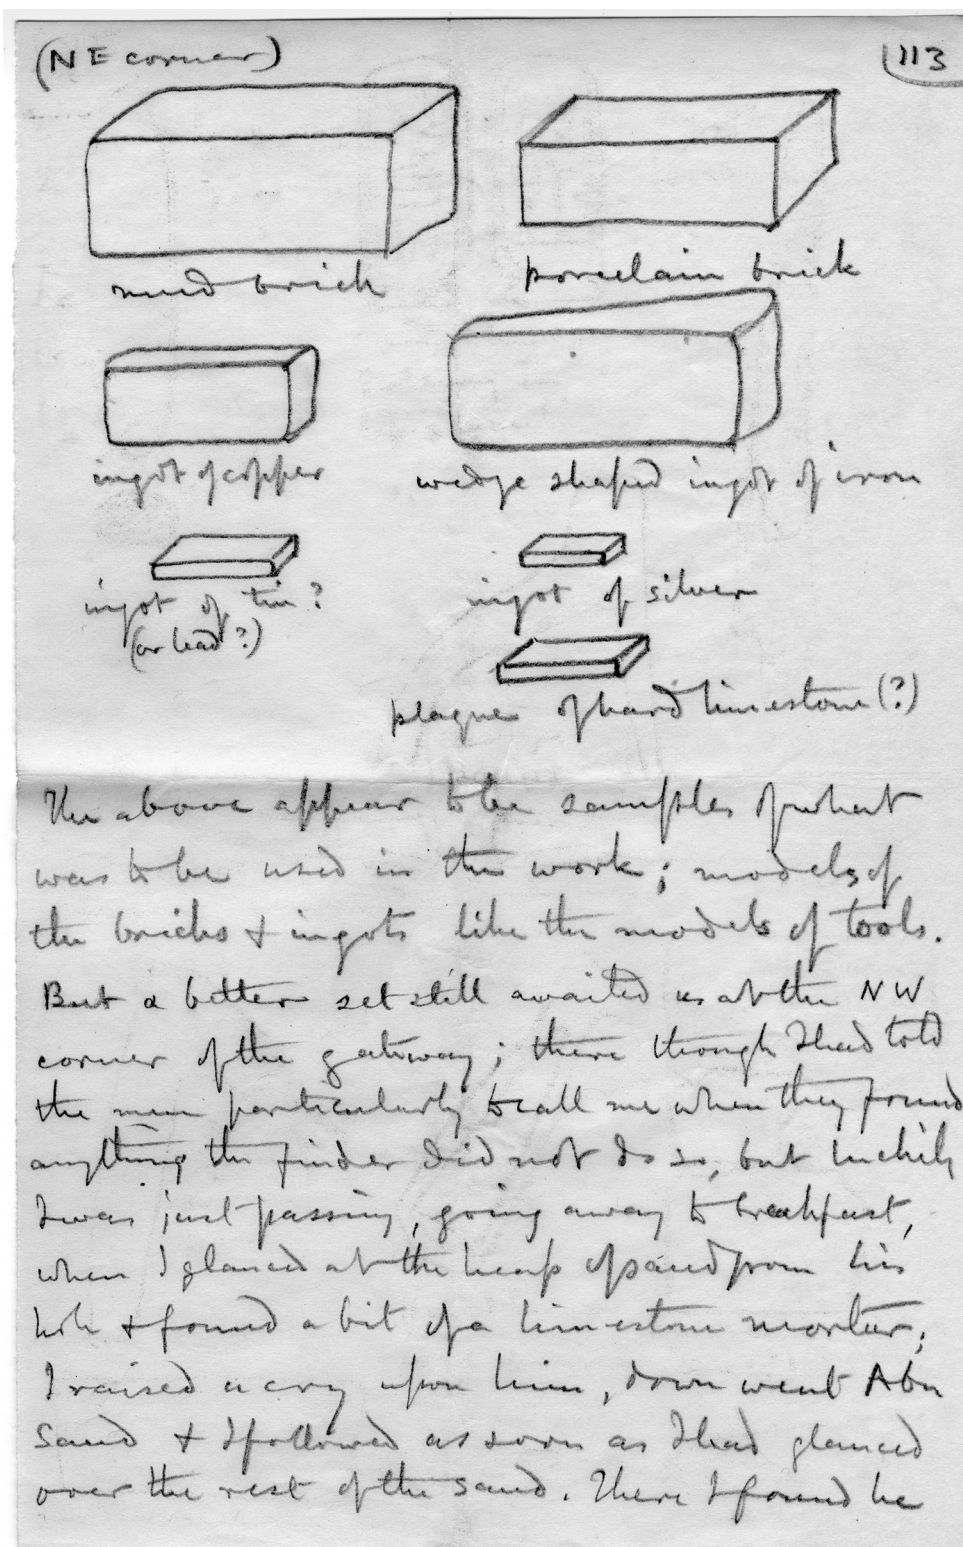 (NE corner)
113
mud brick
porcelain brick
ingot of copper
wedge shaped ingot of iron
ingot of tin?
(or lead?)
ingot of silver
plaque of hard limestone (?)
The above appear to be samples of what
was to be used in the work; models of
the bricks & ingots like the models of tools.
But a better set still awaited us at the NW
corner of the gateway; there though I had told
the men particularly to call me when they found
anything the finder did not do so, but luckily
I was just passing, going away to breakfast,
when I glanced at the heap of sand from his
hole & found a bit of a limestone mortar;
I raised a cry upon him, down went Abu
Saud & I followed as soon as I had glanced
over the rest of the sand. There I found he